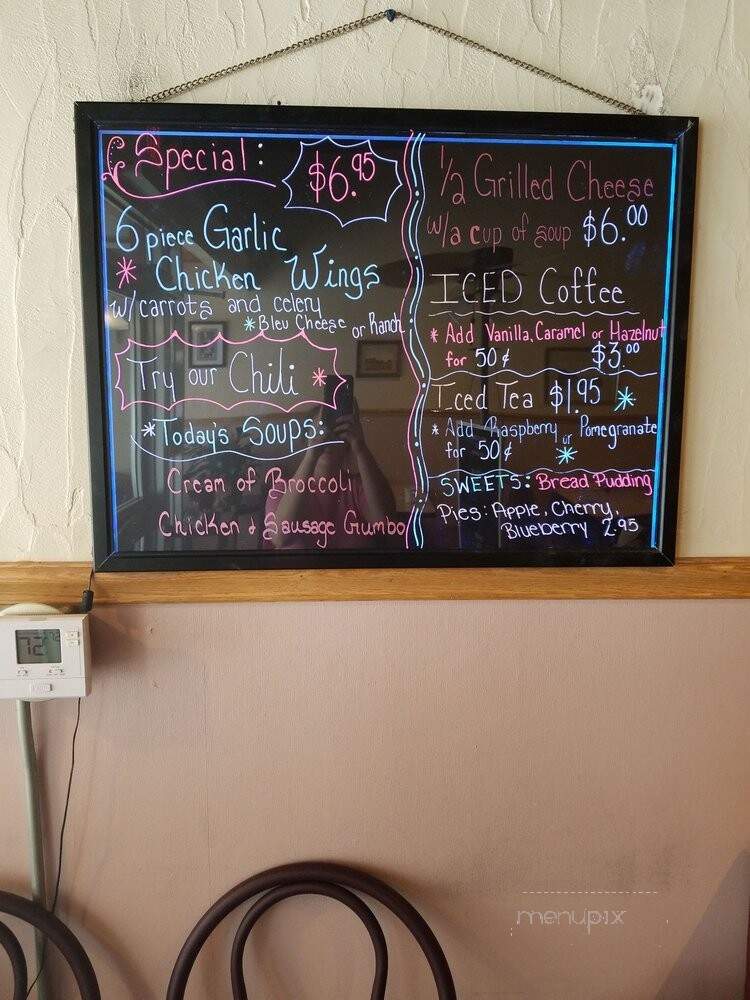 Special: $6.95
6 piece Garlic
* Chicken Wings
w/carrots and celery
*Bleu Cheese or Ranch
Try our Chili *
*Today's Soups:
Cream of Broccoli
Chicken & Sausage Gumbo
1/2 Grilled Cheese
w/a cup of soup $6.00
ICED Coffee
* Add Vanilla, Caramel or Hazelnut
for 50¢ $3.00
Iced Tea $1.95 *
* Add Raspberry or Pomegranate
for 50¢ *
SWEETS: Bread Pudding
Pies: Apple, Cherry,
Blueberry 2.95
72
menupix